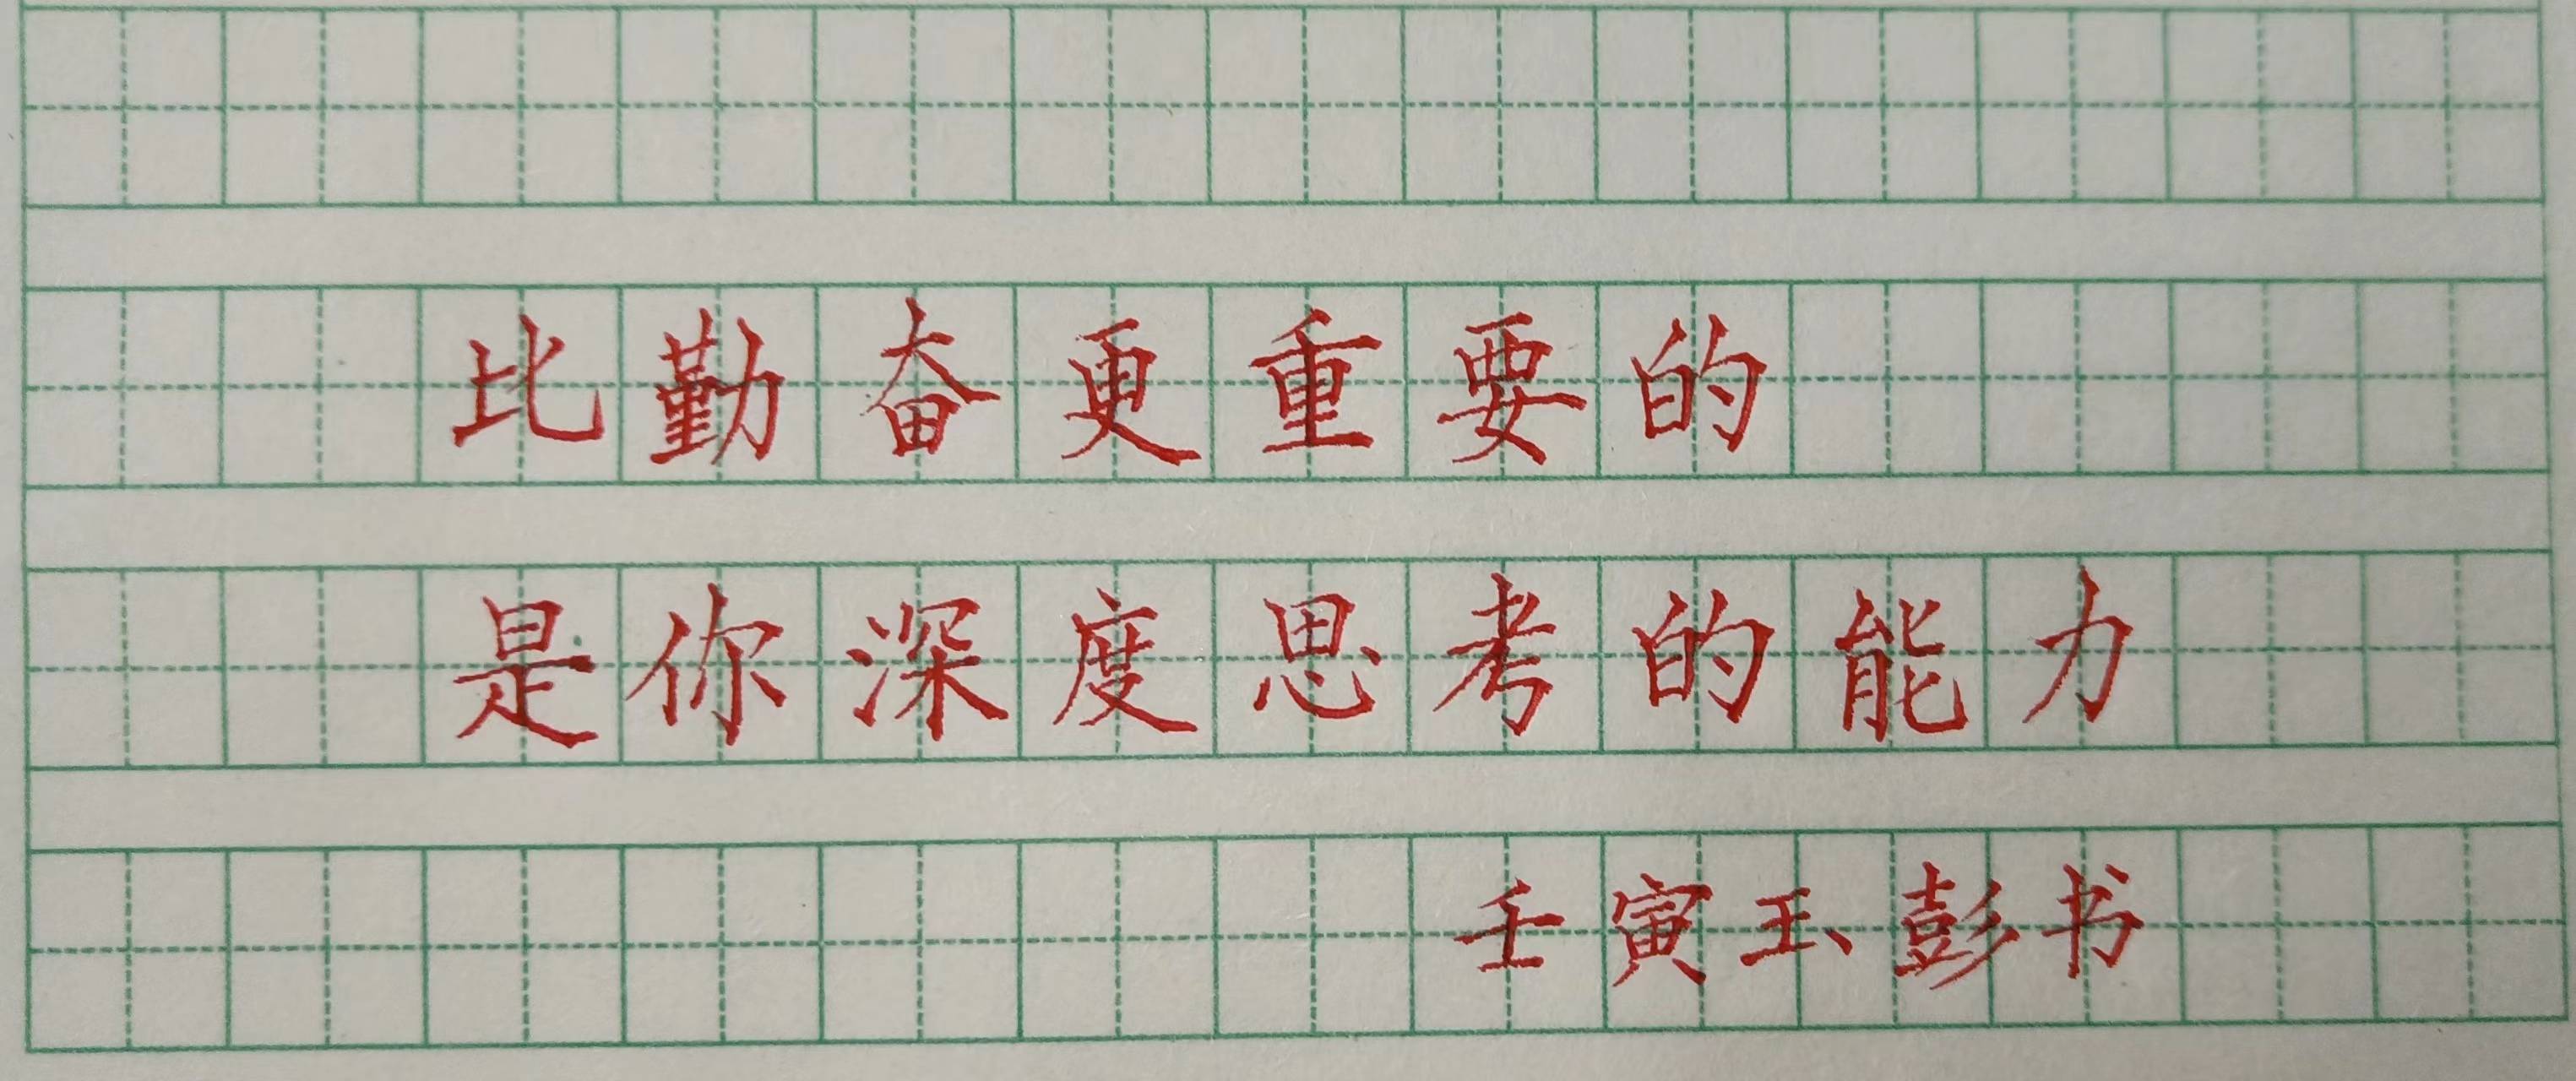 比勤奋更重要的
是你深度思考的能力
壬寅玉彭书